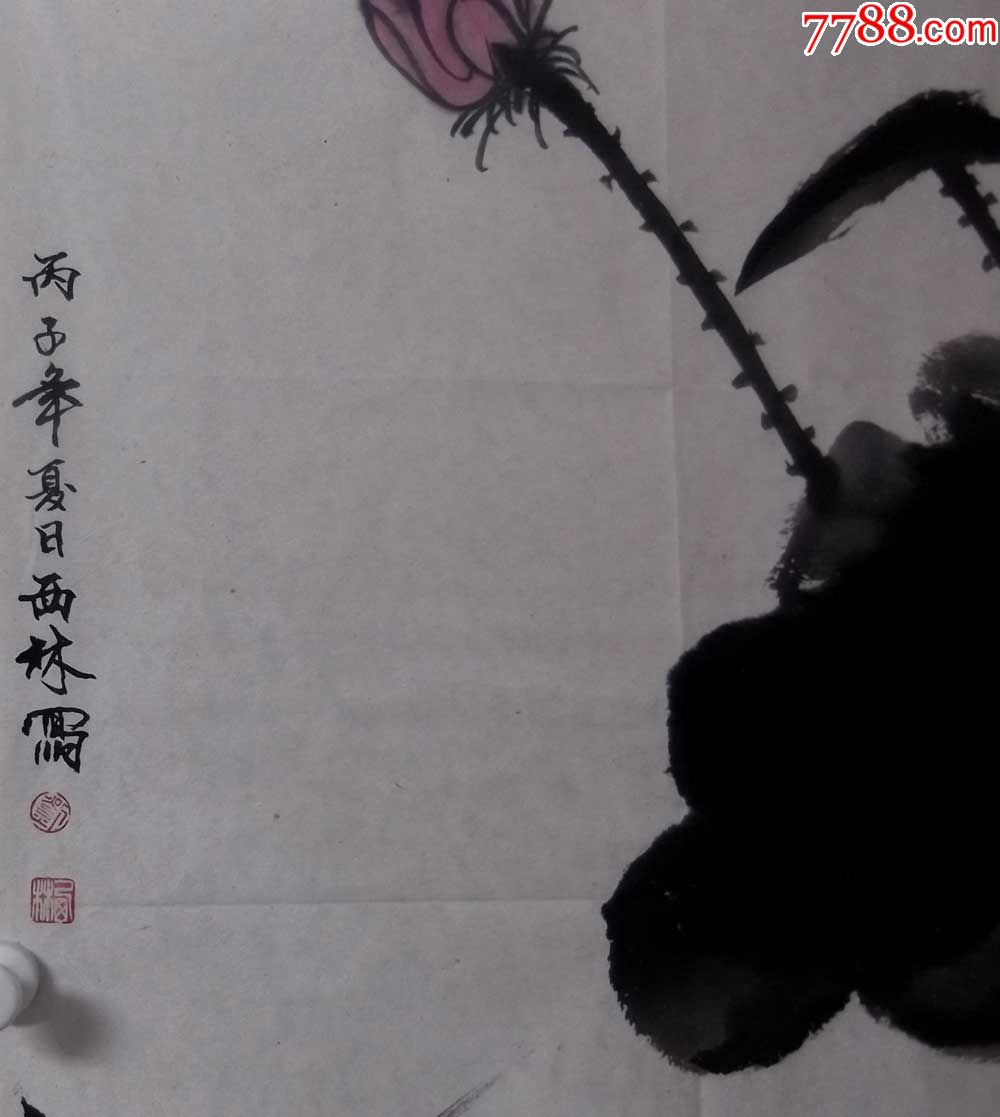 7788.com
丙子年夏日西林写
西林